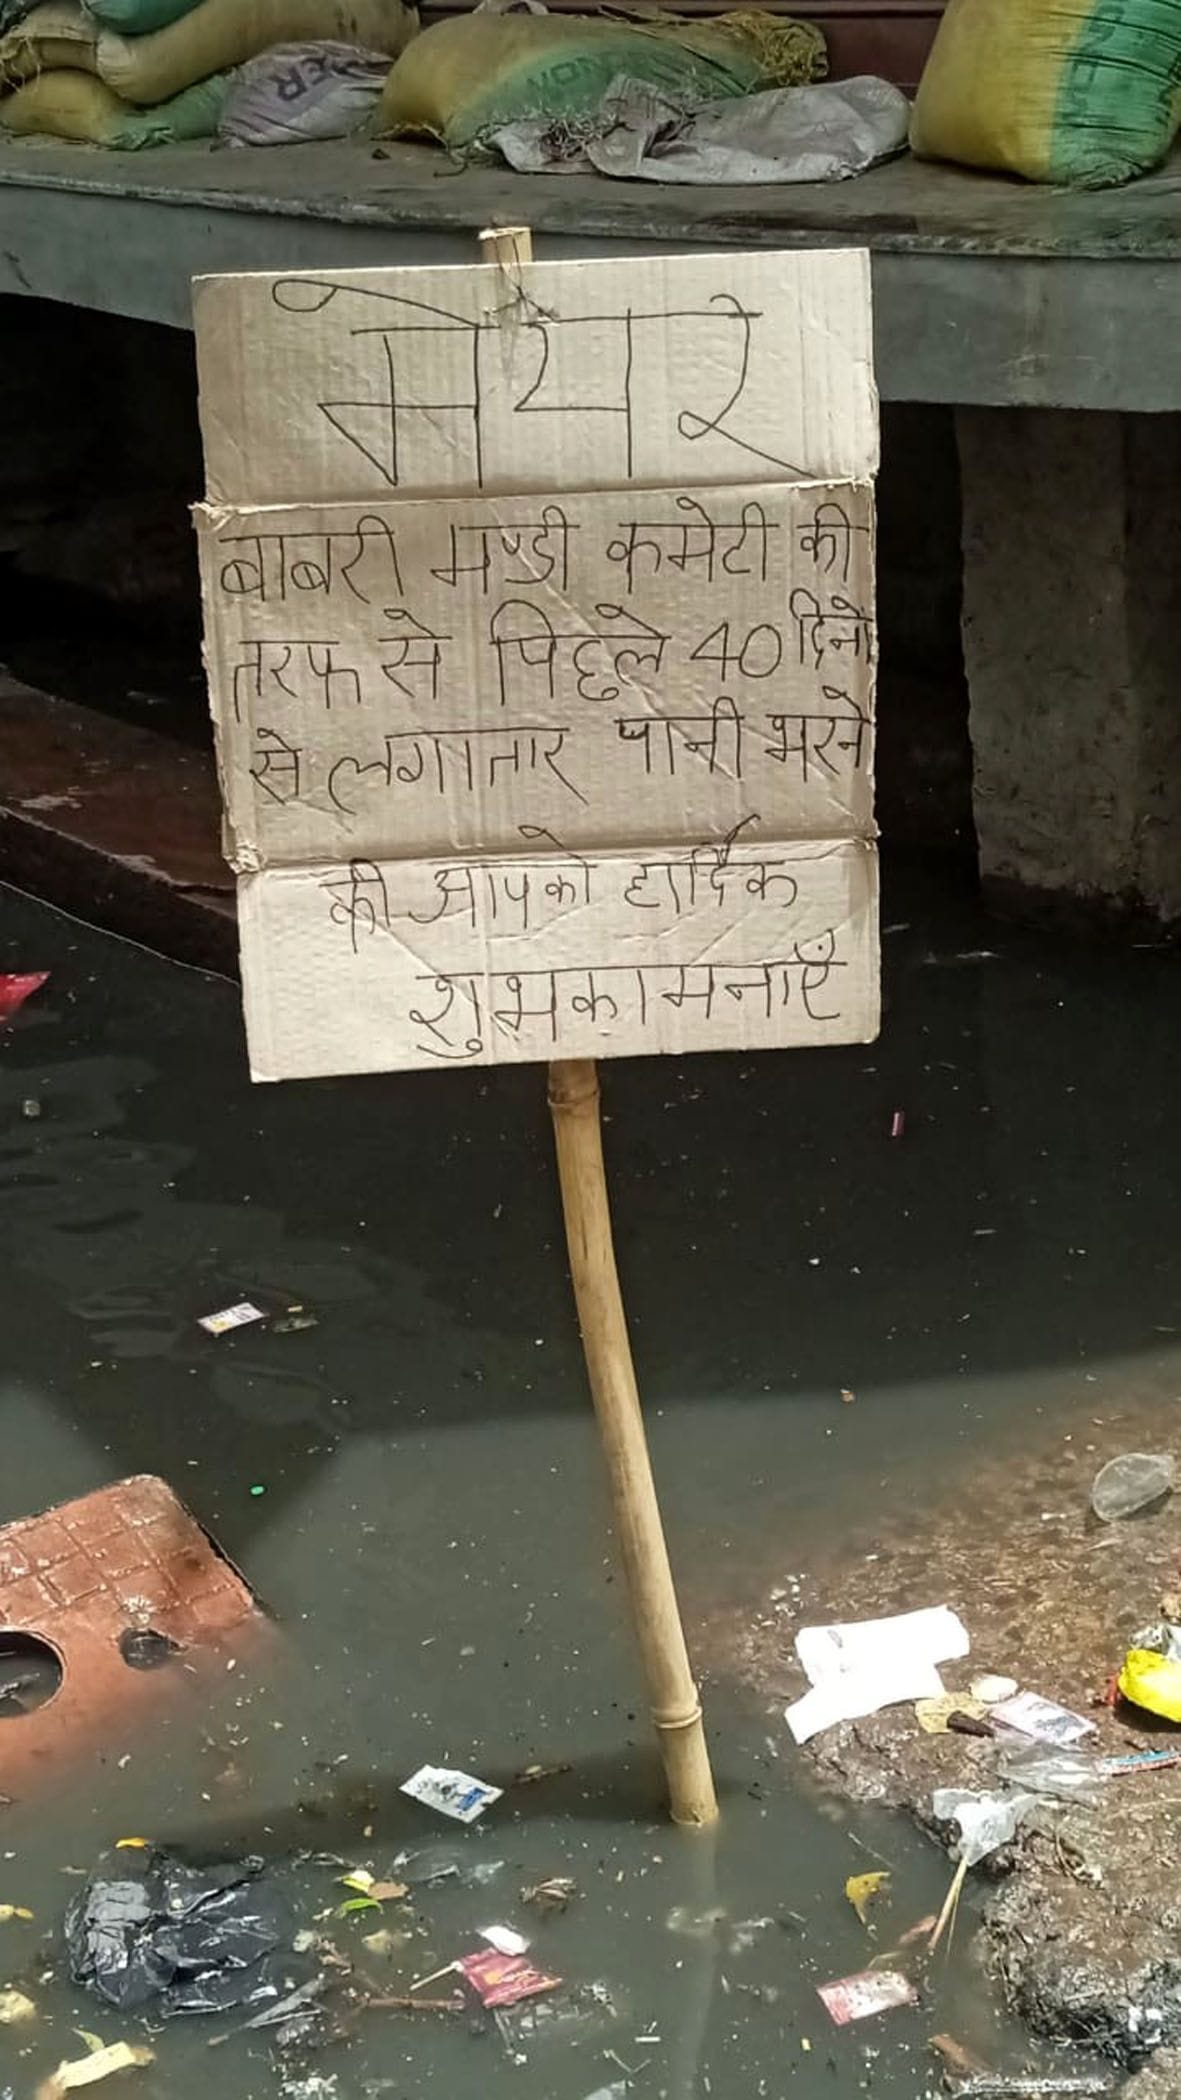 मेयर
बाबरी मण्डी कमेटी की
तरफ से पिछले 40 दिनो
से लगातार पानी भरने
की आपको हार्दिक
शुभकामनाएँ